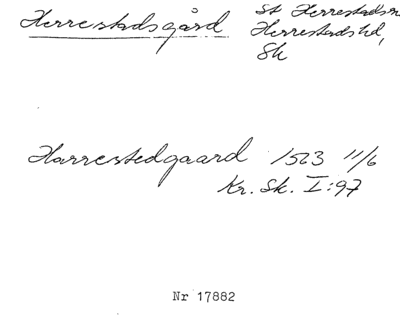 Herrestadsgård St Herrestads sn
Herrestads hd,
Sk
Harrestedgaard 1523 11/6
Kr. Sk. I:97
Nr 17882